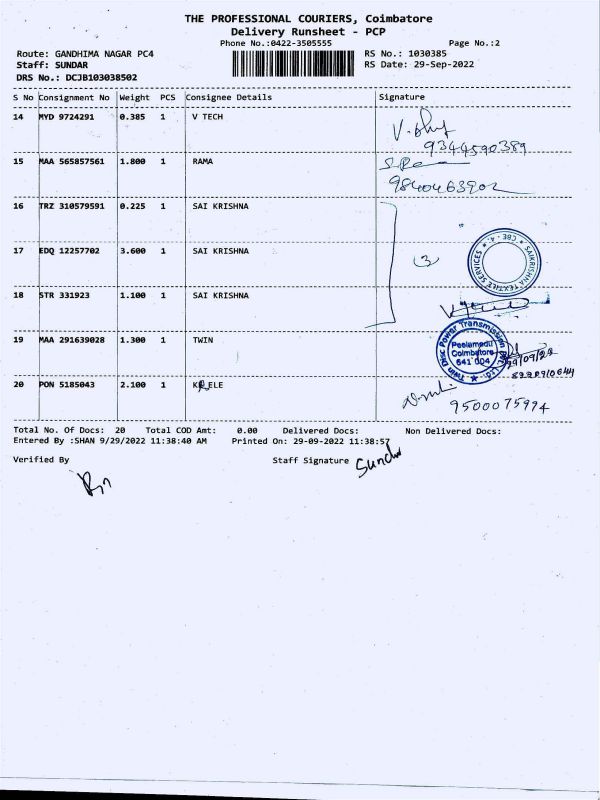 THE PROFESSIONAL COURIERS, Coimbatore
Delivery Runsheet - PCP
Phone No.:0422-3505555
Page No.:2
Route: GANDHIMA NAGAR PC4
RS No.: 1030385
Staff: SUNDAR
RS Date: 29-Sep-2022
DRS No.: DCJB103038502
S No Consignment No Weight PCS Consignee Details Signature
14 MYD 9724291 0.385 1 V TECH
9344590389
15 MAA 565857561 1.800 1 RAMA
9840463902
16 TRZ 310579591 0.225 1 SAI KRISHNA
17 EDQ 12257702 3.600 1 SAI KRISHNA
3
SAIKRISHNA TEXTILE SERVICES
CBE - 4.
18 STR 331923 1.100 1 SAI KRISHNA
19 MAA 291639028 1.300 1 TWIN
Twin Disc Power Transmission
Peelamedu
Coimbatore
641 004
20 PON 5185043 2.100 1 ELE
9500075994
Total No. Of Docs: 20 Total COD Amt: 0.00 Delivered Docs: Non Delivered Docs:
Entered By :SHAN 9/29/2022 11:38:40 AM Printed On: 29-09-2022 11:38:57
Verified By Staff Signature